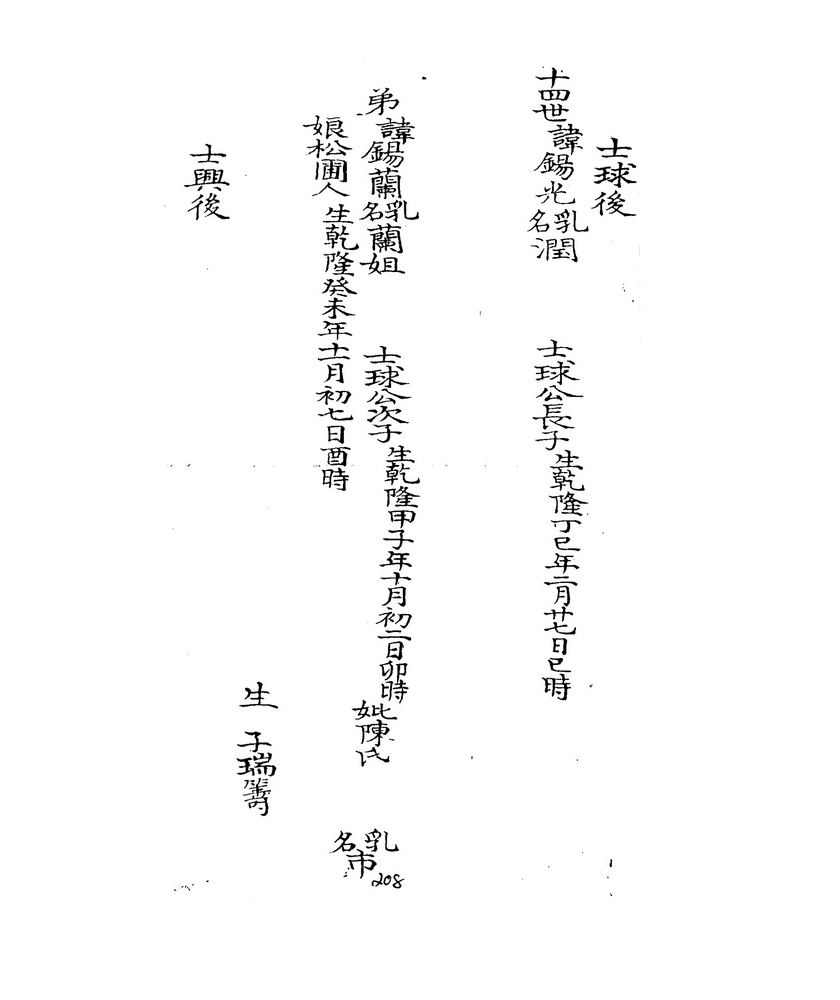 士球後
十四世諱錫光乳名潤 士球公長子生乾隆丁巳年二月廿七日巳時
弟諱錫蘭乳名蘭姐 士球公次子生乾隆甲子年十月初二日卯時妣陳氏 乳名市
娘松圃人生乾隆癸未年十一月初七日酉時
生 子瑞籌
士興後
208